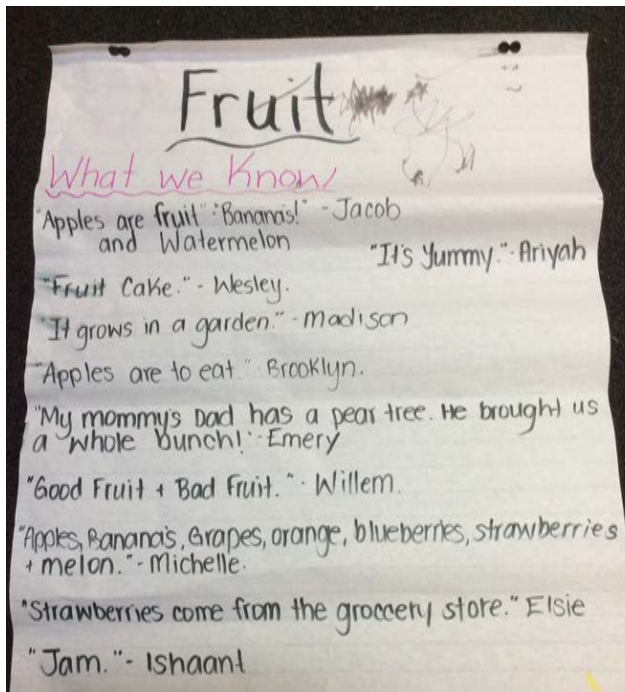 Fruit
What we Know
"Apples are fruit" "Bananas!" - Jacob
and Watermelon
"It's Yummy." - Ariyah
"Fruit Cake." - Wesley.
"It grows in a garden." - Madison
"Apples are to eat." Brooklyn.
"My mommy's Dad has a pear tree. He brought us
a whole bunch!" - Emery
"Good Fruit + Bad Fruit." - Willem.
"Apples, Banana's, Grapes, orange, blueberries, strawberries
+ melon." - Michelle.
"Strawberries come from the groccery store." Elsie
"Jam." - Ishaant